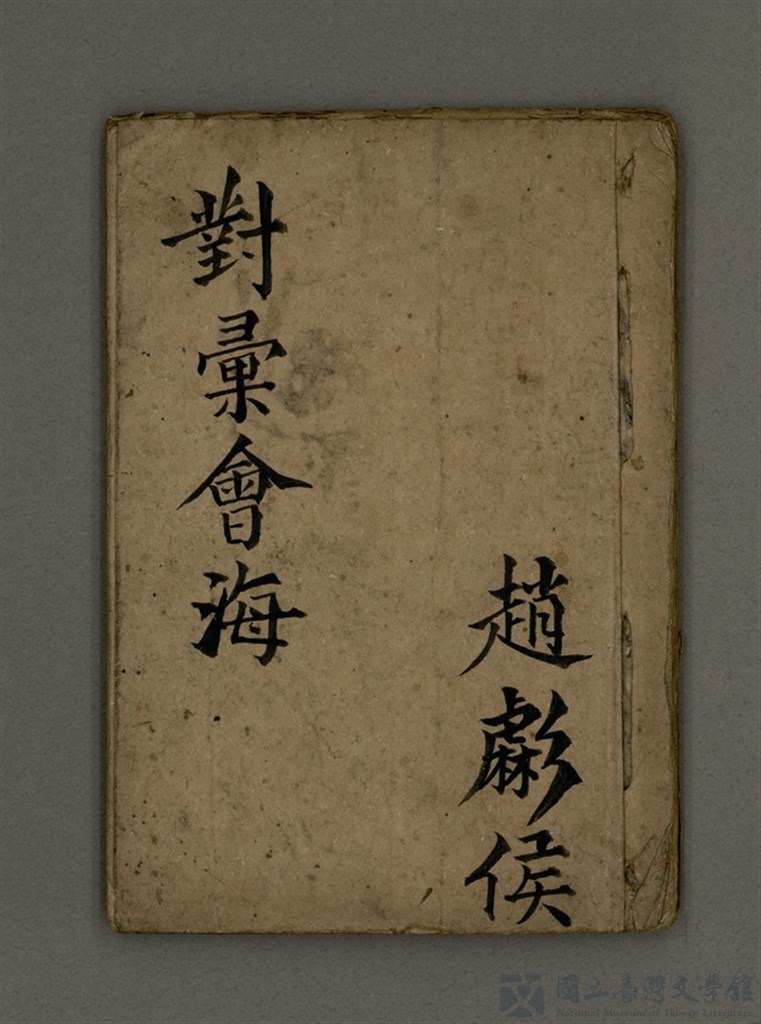 趙侯
對彙會海
國立臺灣文學館
National Museum of Taiwan Literature